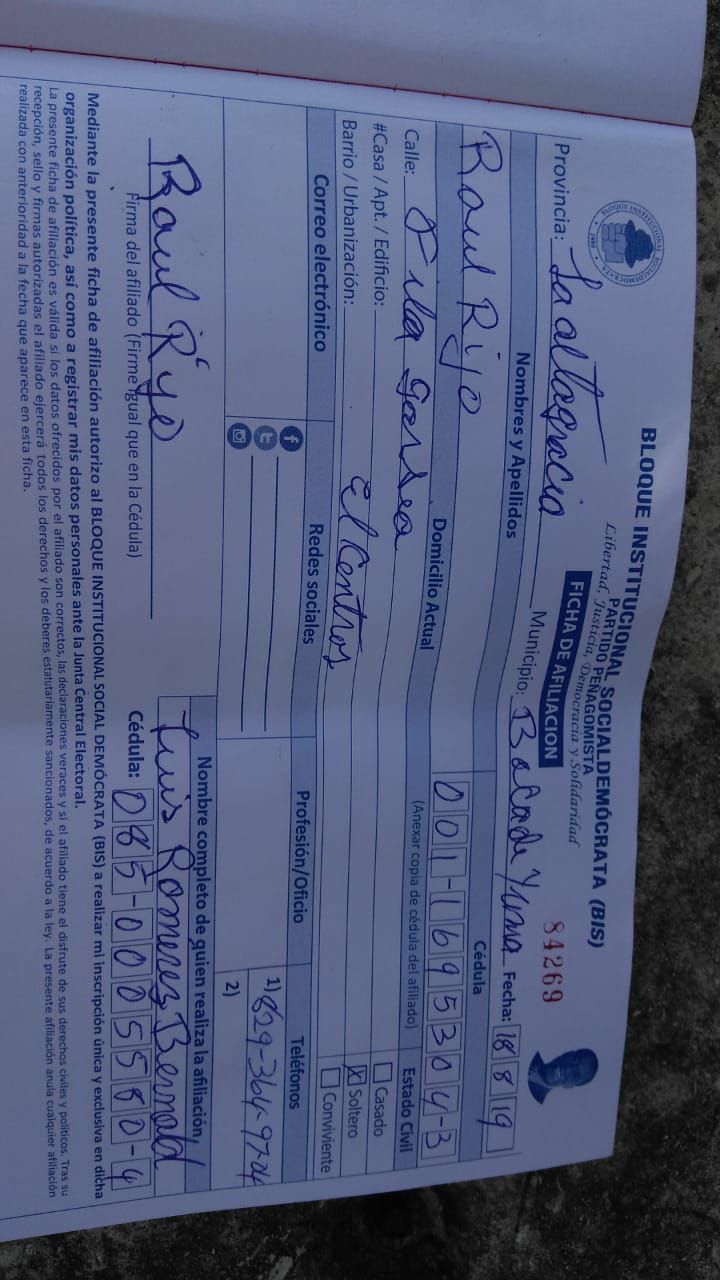 BLOQUE INSTITUCIONAL SOCIALDEMÓCRATA (BIS)
PARTIDO PEÑAGOMISTA
Libertad, Justicia, Democracia y Solidaridad
FICHA DE AFILIACION
84269
Provincia: La altagracia Municipio: Boca de Yuma Fecha: 18 8 19
Nombres y Apellidos Cédula
Raul Rijo 001-1695304-3
Domicilio Actual (Anexar copia de cédula del afiliado) Estado Civil
Calle:
#Casa / Apt. / Edificio: Casado
Barrio / Urbanización: El Centro X Soltero
Conviviente
Correo electrónico Redes sociales Profesión/Oficio Teléfonos
1) 829-364-9724
2)
Nombre completo de quien realiza la afiliación
Luis Romerez
Raul Rijo
Firma del afiliado (Firme igual que en la Cédula) Cédula: 085-0005580-4
Mediante la presente ficha de afiliación autorizo al BLOQUE INSTITUCIONAL SOCIAL DEMÓCRATA (BIS) a realizar mi inscripción única y exclusiva en dicha
organización política, así como a registrar mis datos personales ante la Junta Central Electoral.
La presente ficha de afiliación es válida si los datos ofrecidos por el afiliado son correctos, las declaraciones veraces y si el afiliado tiene el disfrute de sus derechos civiles y políticos. Tras su
recepción, sello y firmas autorizadas el afiliado ejercerá todos los derechos y los deberes estatutariamente sancionados, de acuerdo a la ley. La presente afiliación anula cualquier afiliación
realizada con anterioridad a la fecha que aparece en esta ficha.